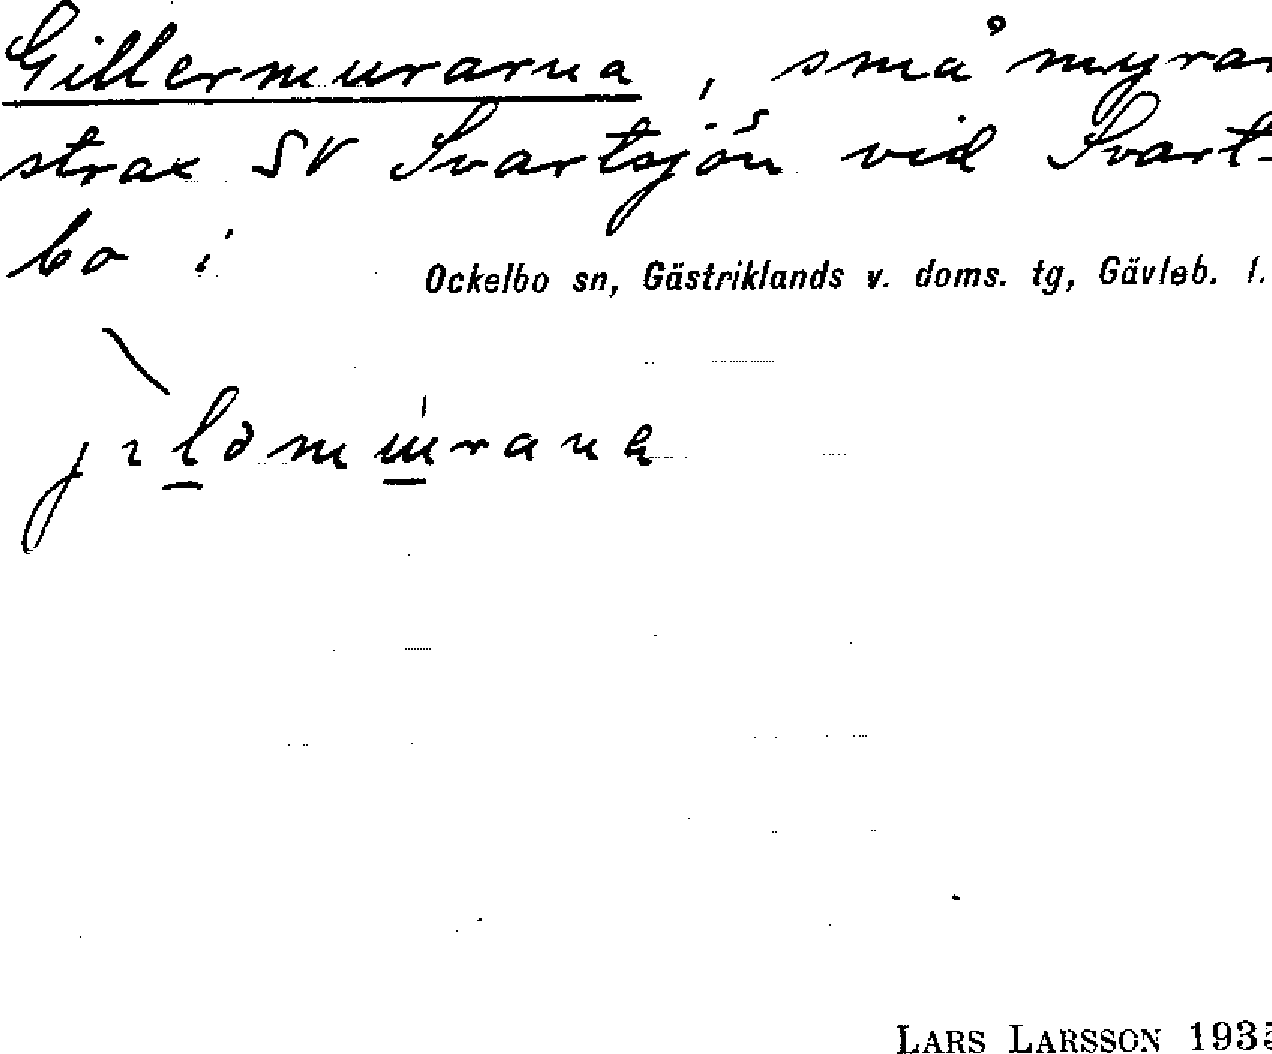 Gillermurarna, små myrar
strax SV Svartsjön vid Svart-
bo i
Ockelbo sn, Gästriklands v. doms. tg, Gävleb. l.
jɩləmɯ́rana
LARS LARSSON 1935